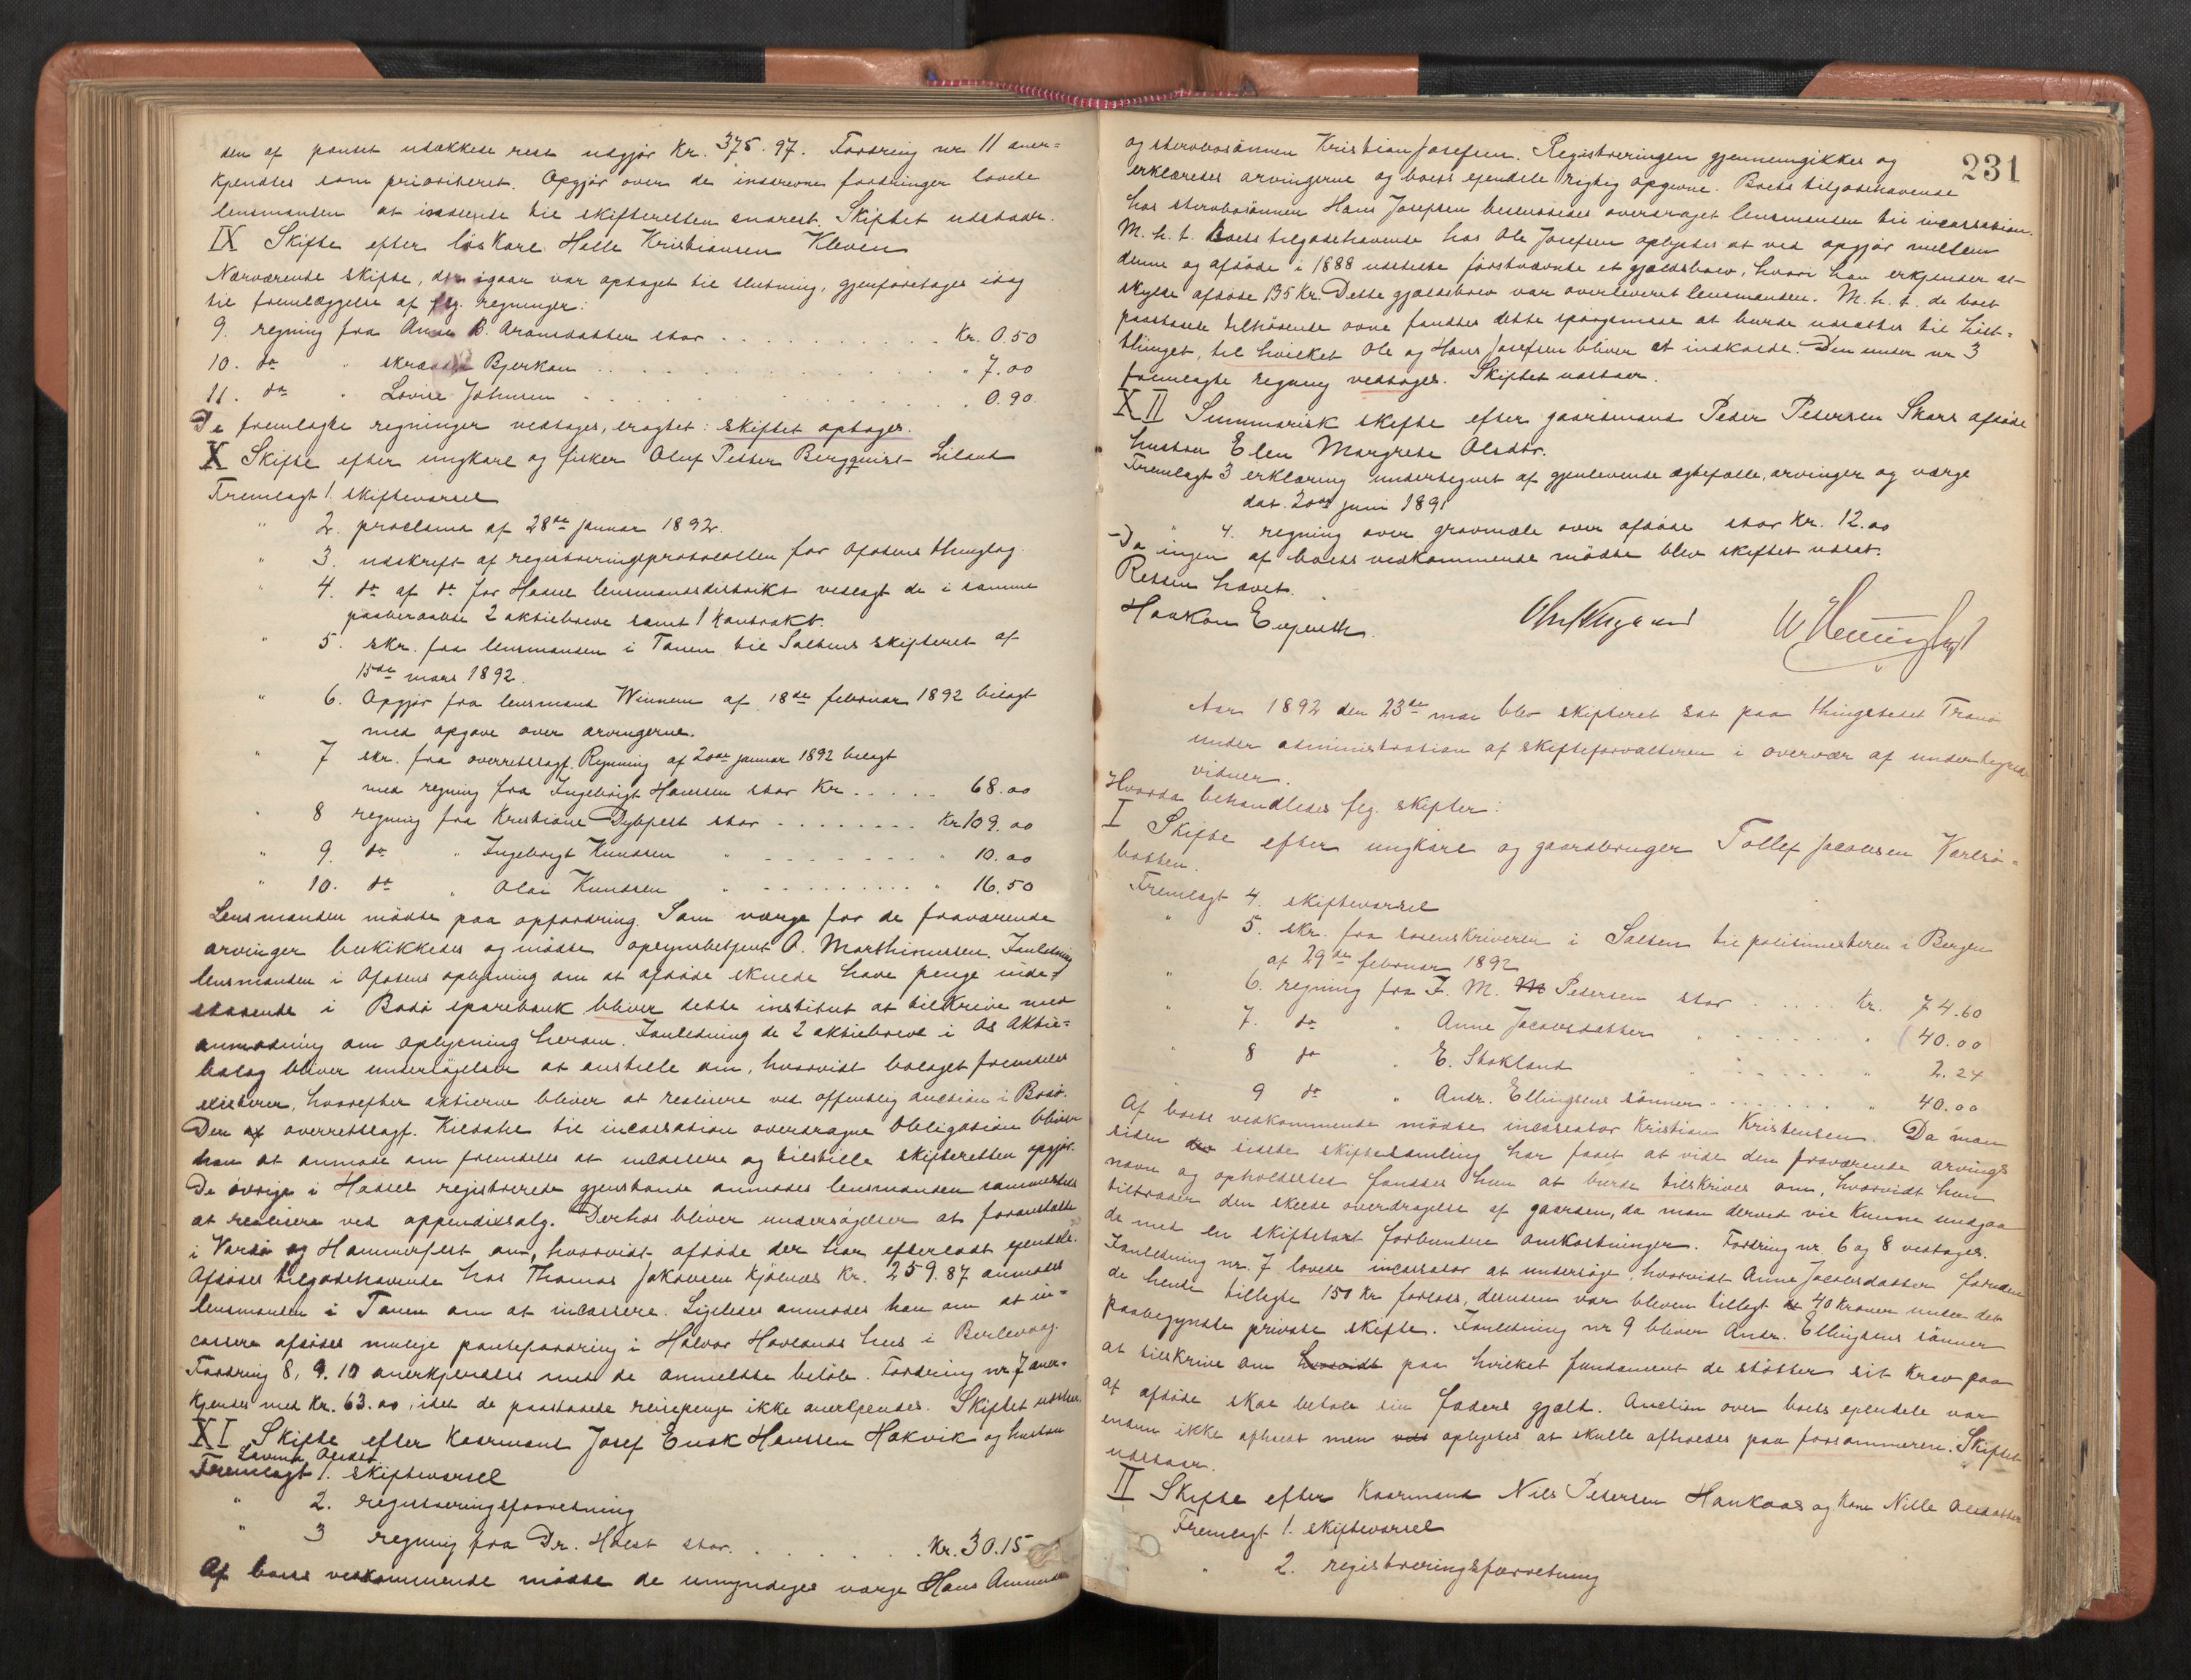 den af pantet udækkede rest udgjør Kr. 375.97. Fordring nr 11 aner-
kjendtes som prioriteret. Opgjør over de inddrevne fordringer lovede
lensmanden at indsende til skifteretten snarest. Skiftet udstaar.
IX Skifte efter løskarl Helle Kristiansen Kleven
Nærværende skifte, der igaar var optaget til slutning, gjenforetages idag
til fremlæggelse af flg. regninger:
9. regning fra Anne B. Aronsdatter stor . . . Kr. 0.50
10. do " skrædder Bjerkan . . . " 7.00
11. do " Lovise Johnsen . . . 0.90
De fremlagte regninger vedtages, eragtet: skiftet optages.
X Skifte efter ungkarl og fisker Oluf Petter Bergquist Liland
Fremlagt 1. skiftevarsel
" 2. proclama af 28de januar 1892.
" 3. udskrift af registreringsprotocollen for Ofotens thinglag.
" 4. do af do for Hassel lensmandsdistrikt vedlagt de i samme
paaberaabte 2 aktiebreve samt 1 kontrakt.
" 5. skr. fra lensmanden i Tanen til Saltens skifteret af
15de mars 1892.
" 6. Opgjør fra lensmand Winnem af 18de februar 1892 bilagt
med opgave over arvingerne.
" 7 skr. fra overretssagf. Rynning af 20de januar 1892 bilagt
med regning fra Ingebrigt Hanssen stor Kr . . . 68.00
" 8 regning fra Kristiane Dybfest stor . . . Kr 109.00
" 9. do " Ingeborgt Knudsen " . . . " 10.00
" 10. do " Olai Knudsen " . . . " 16.50
Lensmanden mødte paa opfordring. Som værge for de fraværende
arvinger beskikkedes og mødte opsynsbetjent O. Marthinussen. Ianledning
lensmanden i Ofotens oplysning om at afdøde skulde have penge inde-
staaende i Bodø sparebank bliver dette institut at tilskrive med
anmodning om oplysning herom. Ianledning de 2 aktiebreve i Os Aktie-
bolag bliver undersøgelser at anstille om, hvorvidt bolaget fremdeles
existerer, hvorefter aktierne bliver at realisere ved offentlig auction i Bodø.
Den af overretssagf. Kildahl til incassation overdragne obligation bliver
han at anmode om fremdeles at incassere og tilstille skifteretten opgjør.
De øvrige i Hassel registrerede gjenstande anmodes lensmanden sammesteds
at realisere ved appendixsalg. Derhos bliver undersøgelser at foranstalte
i Vardø og Hammerfest om, hvorvidt afdøde der har efterladt ejendele.
Afdødes tilgodehavende hos Thomas Jakobsen Kjølnes Kr. 259.87 anmodes
lensmanden i Tanen om at incassere. Ligeledes anmodes han om at in-
cassere afdødes mulige pantefordring i Halvor Hovlands hus i Berlevaag.
Fordring 8, 9. 10 anerkjendtes med de anmeldte beløb. Fordring nr 7 aner-
kjendes med Kr. 63.00, idet de paastaaede reisepenge ikke anerkjendes. Skiftet udstaar.
XI Skifte efter kaarmand Josef Enok Hanssen Hakvik og hustru
Lavina Olsdtr.
Fremlagt 1. skiftevarsel
" 2. registreringsforretning
" 3 regning fra Dr. Holst stor . . . Kr. 30.15
Af boets vedkommende mødte de umyndiges værge Hans
og stervbosønnen Kristian Josefsen. Registreringen gjennemgikkes og
erklæredes arvingerne og boets ejendele rigtig opgivne. Boets tilgodehavende
hos stervbosønnen Hans Josefsen besluttedes overdraget lensmanden til incassation.
M. h. t. Boets tilgodehavende hos Ole Josefsen oplystes at ved opgjør mellem
denne og afdøde i 1888 udstedte førstnævnte et gjældsbrev, hvori han erkjender at
skylde afdøde 135 Kr. Dette gjældsbrev var overleveret lensmanden. M. h. t. de boet
paastaaede tilhørende ovne fandtes dette spørgsmaal at burde udsættes til høst-
thinget, til hvilket Ole og Hans Josefsen bliver at indkalde. Den under nr 3
fremlagte regning vedtages. Skiftet udstaar.
XII Summarisk skifte efter gaardmand Peder Petersen Skars afdøde
hustru Elen Margrete Olsdtr.
Fremlagt 3 erklæring undertegnet af gjenlevende ægtefælle, arvinger og værge
dat. 20de juni 1891
" 4. regning over gravmæle over afdøde stor Kr. 12.00
Da ingen af boets vedkommende mødte blev skiftet udsat.
Retten hævet.
Haakon
231
Aar 1892 den 23de mai blev skifteret sat paa thingstedet Tranø
under administration af skifteforvalteren i overvær af undertegnede
vidner.
Hvorda behandledes flg. skifter:
I Skifte efter ungkarl og gaardbruger Tollef Jacobsen Karlsø-
botten.
Fremlagt 4. skiftevarsel
" 5. skr. fra sorenskriveren i Salten til politimesteren i Bergen
af 29de februar 1892
" 6. regning fra J. M. M Petersen stor . . . Kr. 74.60
" 7. do " Anne Jacobsdatter " . . . " (40.00)
" 8 do " E. Stokland " . . . " 2.24
" 9 do " Andr. Ellingsens sønner . . . " 40.00
Af boets vedkommende mødte incassator Kristian Kristensen. Da man
siden sidste skiftesamling har faaet at vide den fraværende arvings
navn og opholdssted fandtes hun at burde tilskrives om, hvorvidt hun
tiltræder den skeede overdragelse af gaarden, da man derved vil kunne undgaa
de med en skiftetaxt forbundne omkostninger. Fordring nr. 6 og 8 vedtages.
Ianledning nr. 7 lovede incassator at undersøge, hvorvidt Anne Jacobsdatter foruden
de hende tillagte 150 kr forlods, desuden var bleven tillagt 40 kroner under det
paabegyndte private skifte. Ianledning nr 9 bliver Andr. Ellingsens sønner
at tilskrive om hvorvidt paa hvilket fundament de støtter sit krav paa
at afdøde skal betale sin faders gjæld. Auction over boets ejendele var
endnu ikke afholdt men oplystes at skulle afholdes paa forsommeren. Skiftet
udstaar.
II Skifte efter kaarmand Nils Petersen Haukaas og kone Nille Olsdatter
Fremlagt 1. skiftevarsel
" 2. registreringsforretning